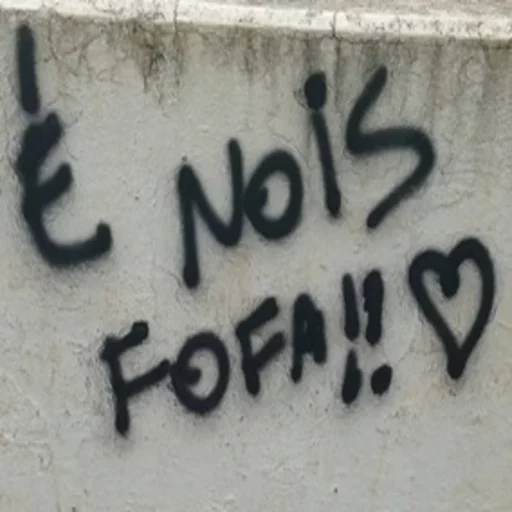 É NOIS
FOFA!! ♡